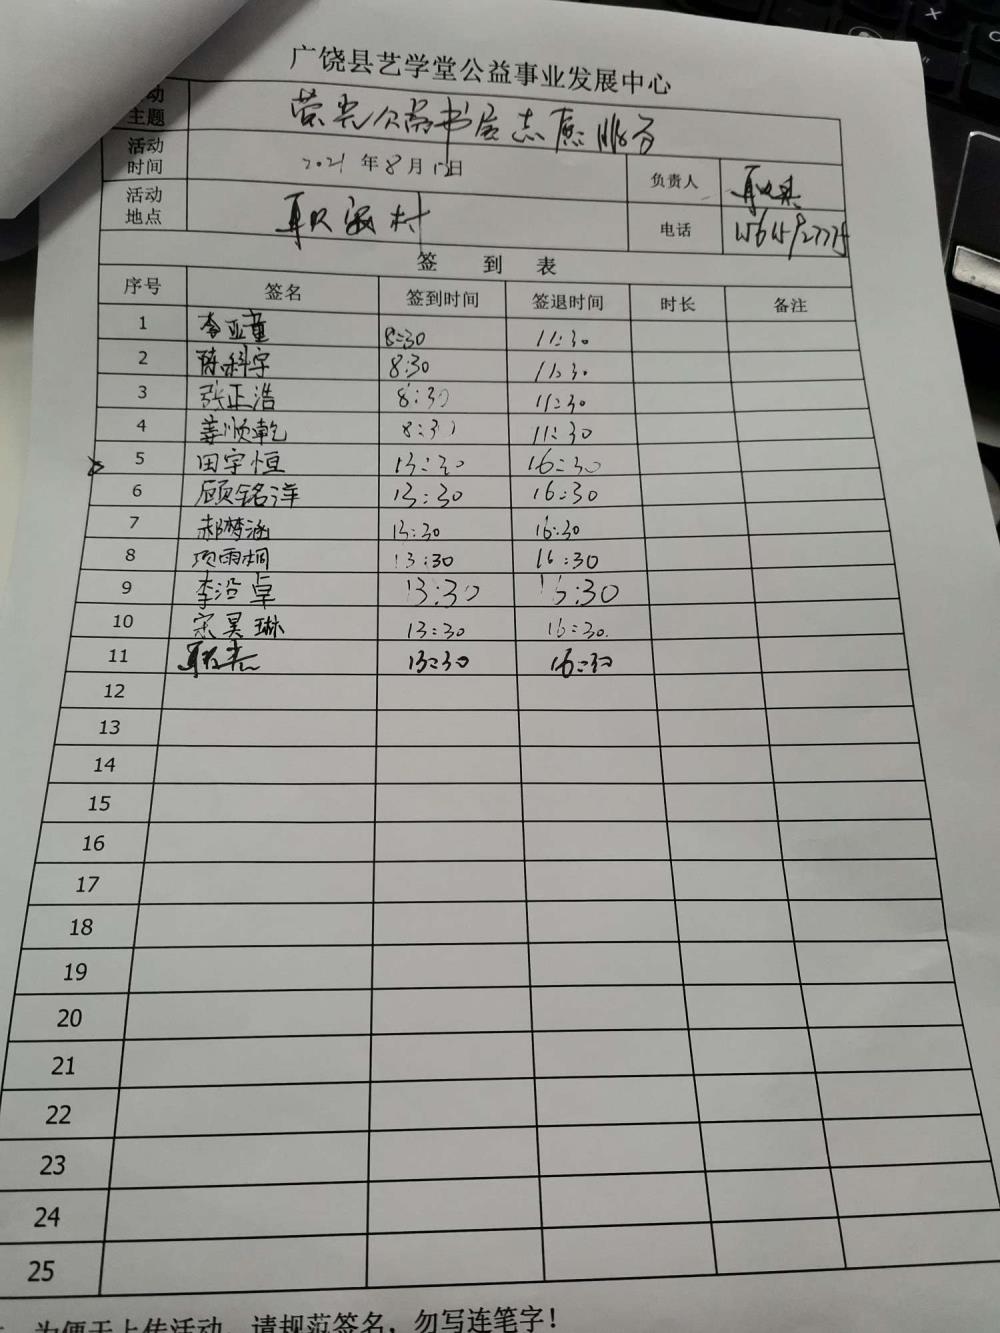 广饶县艺学堂公益事业发展中心
动主题 书屋志愿服务
活动时间 2021年8月 日 负责人
活动地点 耿家村 电话
签 到 表
序号 签名 签到时间 签退时间 时长 备注
1 李亚童 8:30 11:30
2 陈科宇 8:30 11:30
3 张正浩 8:30 11:30
4 姜顺乾 8:30 11:30
5 田宇恒 13:30 16:30
6 顾铭洋 13:30 16:30
7 郝梦涵 13:30 16:30
8 项雨桐 13:30 16:30
9 李沿卓 13:30 16:30
10 宋昊琳 13:30 16:30
11 13:30 16:30
12
13
14
15
16
17
18
19
20
21
22
23
24
25
为便于上传活动，请规范签名，勿写连笔字！